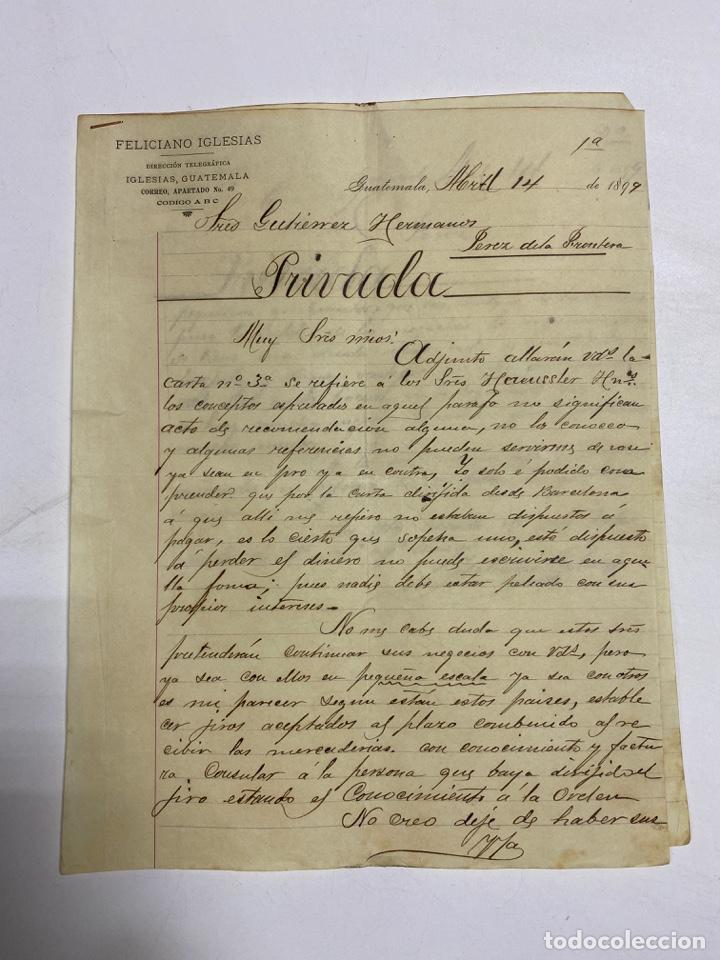 FELICIANO IGLESIAS
DIRECCIÓN TELEGRÁFICA
IGLESIAS, GUATEMALA
CORREO, APARTADO No. 49
CODIGO A B C
1ª
Guatemala, Abril 14 de 1899
Sres Gutiérrez Hermanos
Jerez de la Frontera
Privada
Muy Sres mios:
Adjunto allarán Vds la
carta nº 3ª se refiere á los Sres Haeussler Hnos
los conceptos apuntados en aquel parafo no significan
acto de recomendación alguna, no los conosco
y algunas referencias no pueden servirme de
ya sean en pro ya en contra, Yo solo é podido com
prender que por la carta dirijida desde Barcelona
á que alli me refiero no estaban dispuestos á
pagar, es lo cierto que uno, está dispuesto
á perder el dinero no puede escrivirse en aque
lla forma; pues nadie debe estar peleado con sus
propios intereses.
No me cabe duda que estos Sres
pretenderán continuar sus negocios con Vds, pero
ya sea con ellos en pequeña escala ya sea con otros
es mi parecer segun están estos paises, estable
cer jiros aceptados al plazo combenido al re
cibir las mercaderias. con conocimiento y factu
ra Consular á la persona que baya dirijido el
jiro estando el Conocimiento á la Orden
No creo deje de haber sus
todocoleccion
todocoleccion.net